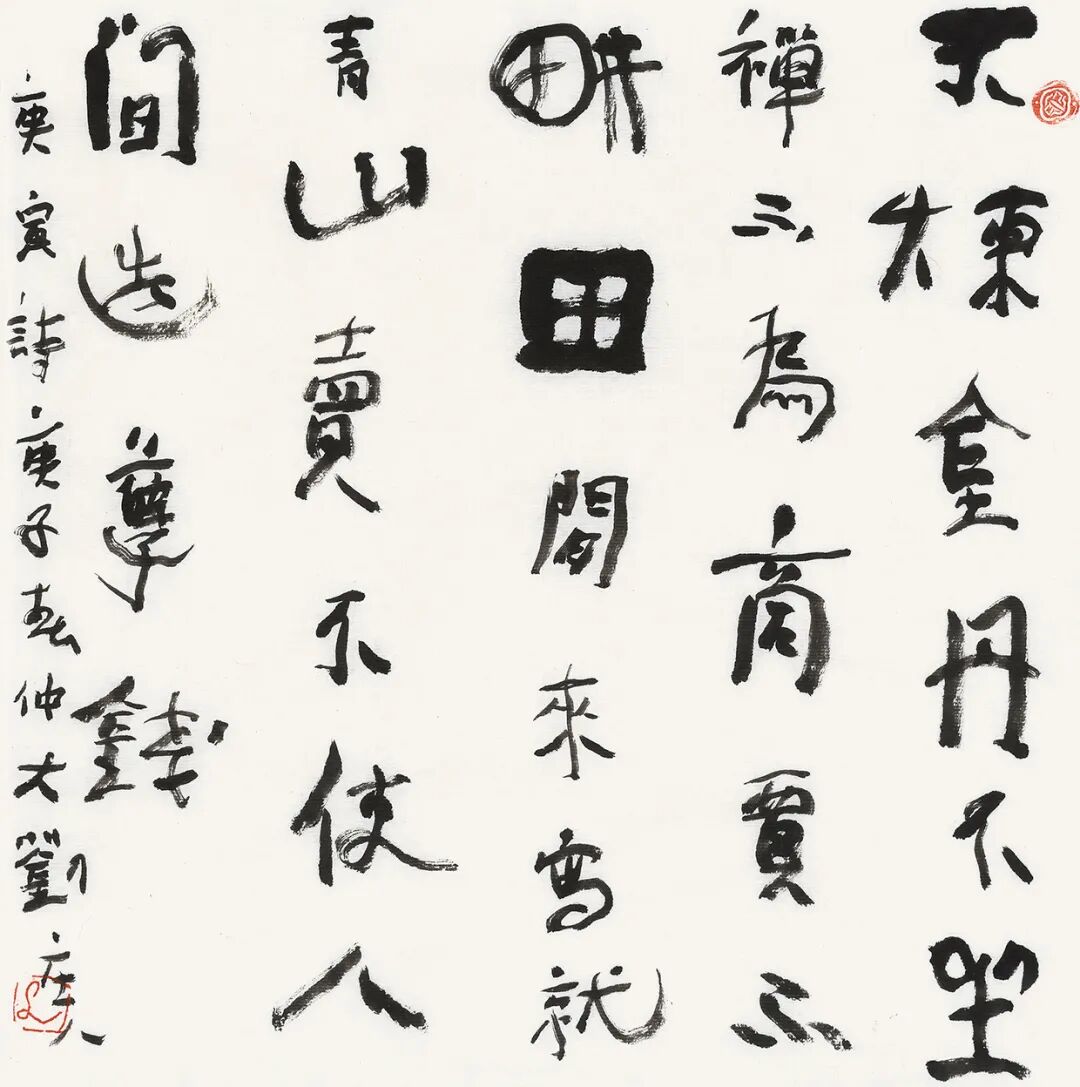 不煉金丹不坐
禪不為商賈不
畊田閒來寫就
青山賣不使人
間造孽錢
庚寅詩庚子春仲大劉庄人